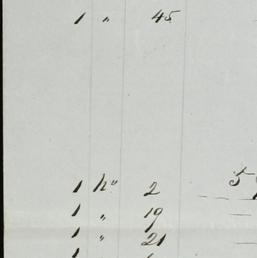 1 " 45
1 No 2 5
1 " 19
1 " 21
1